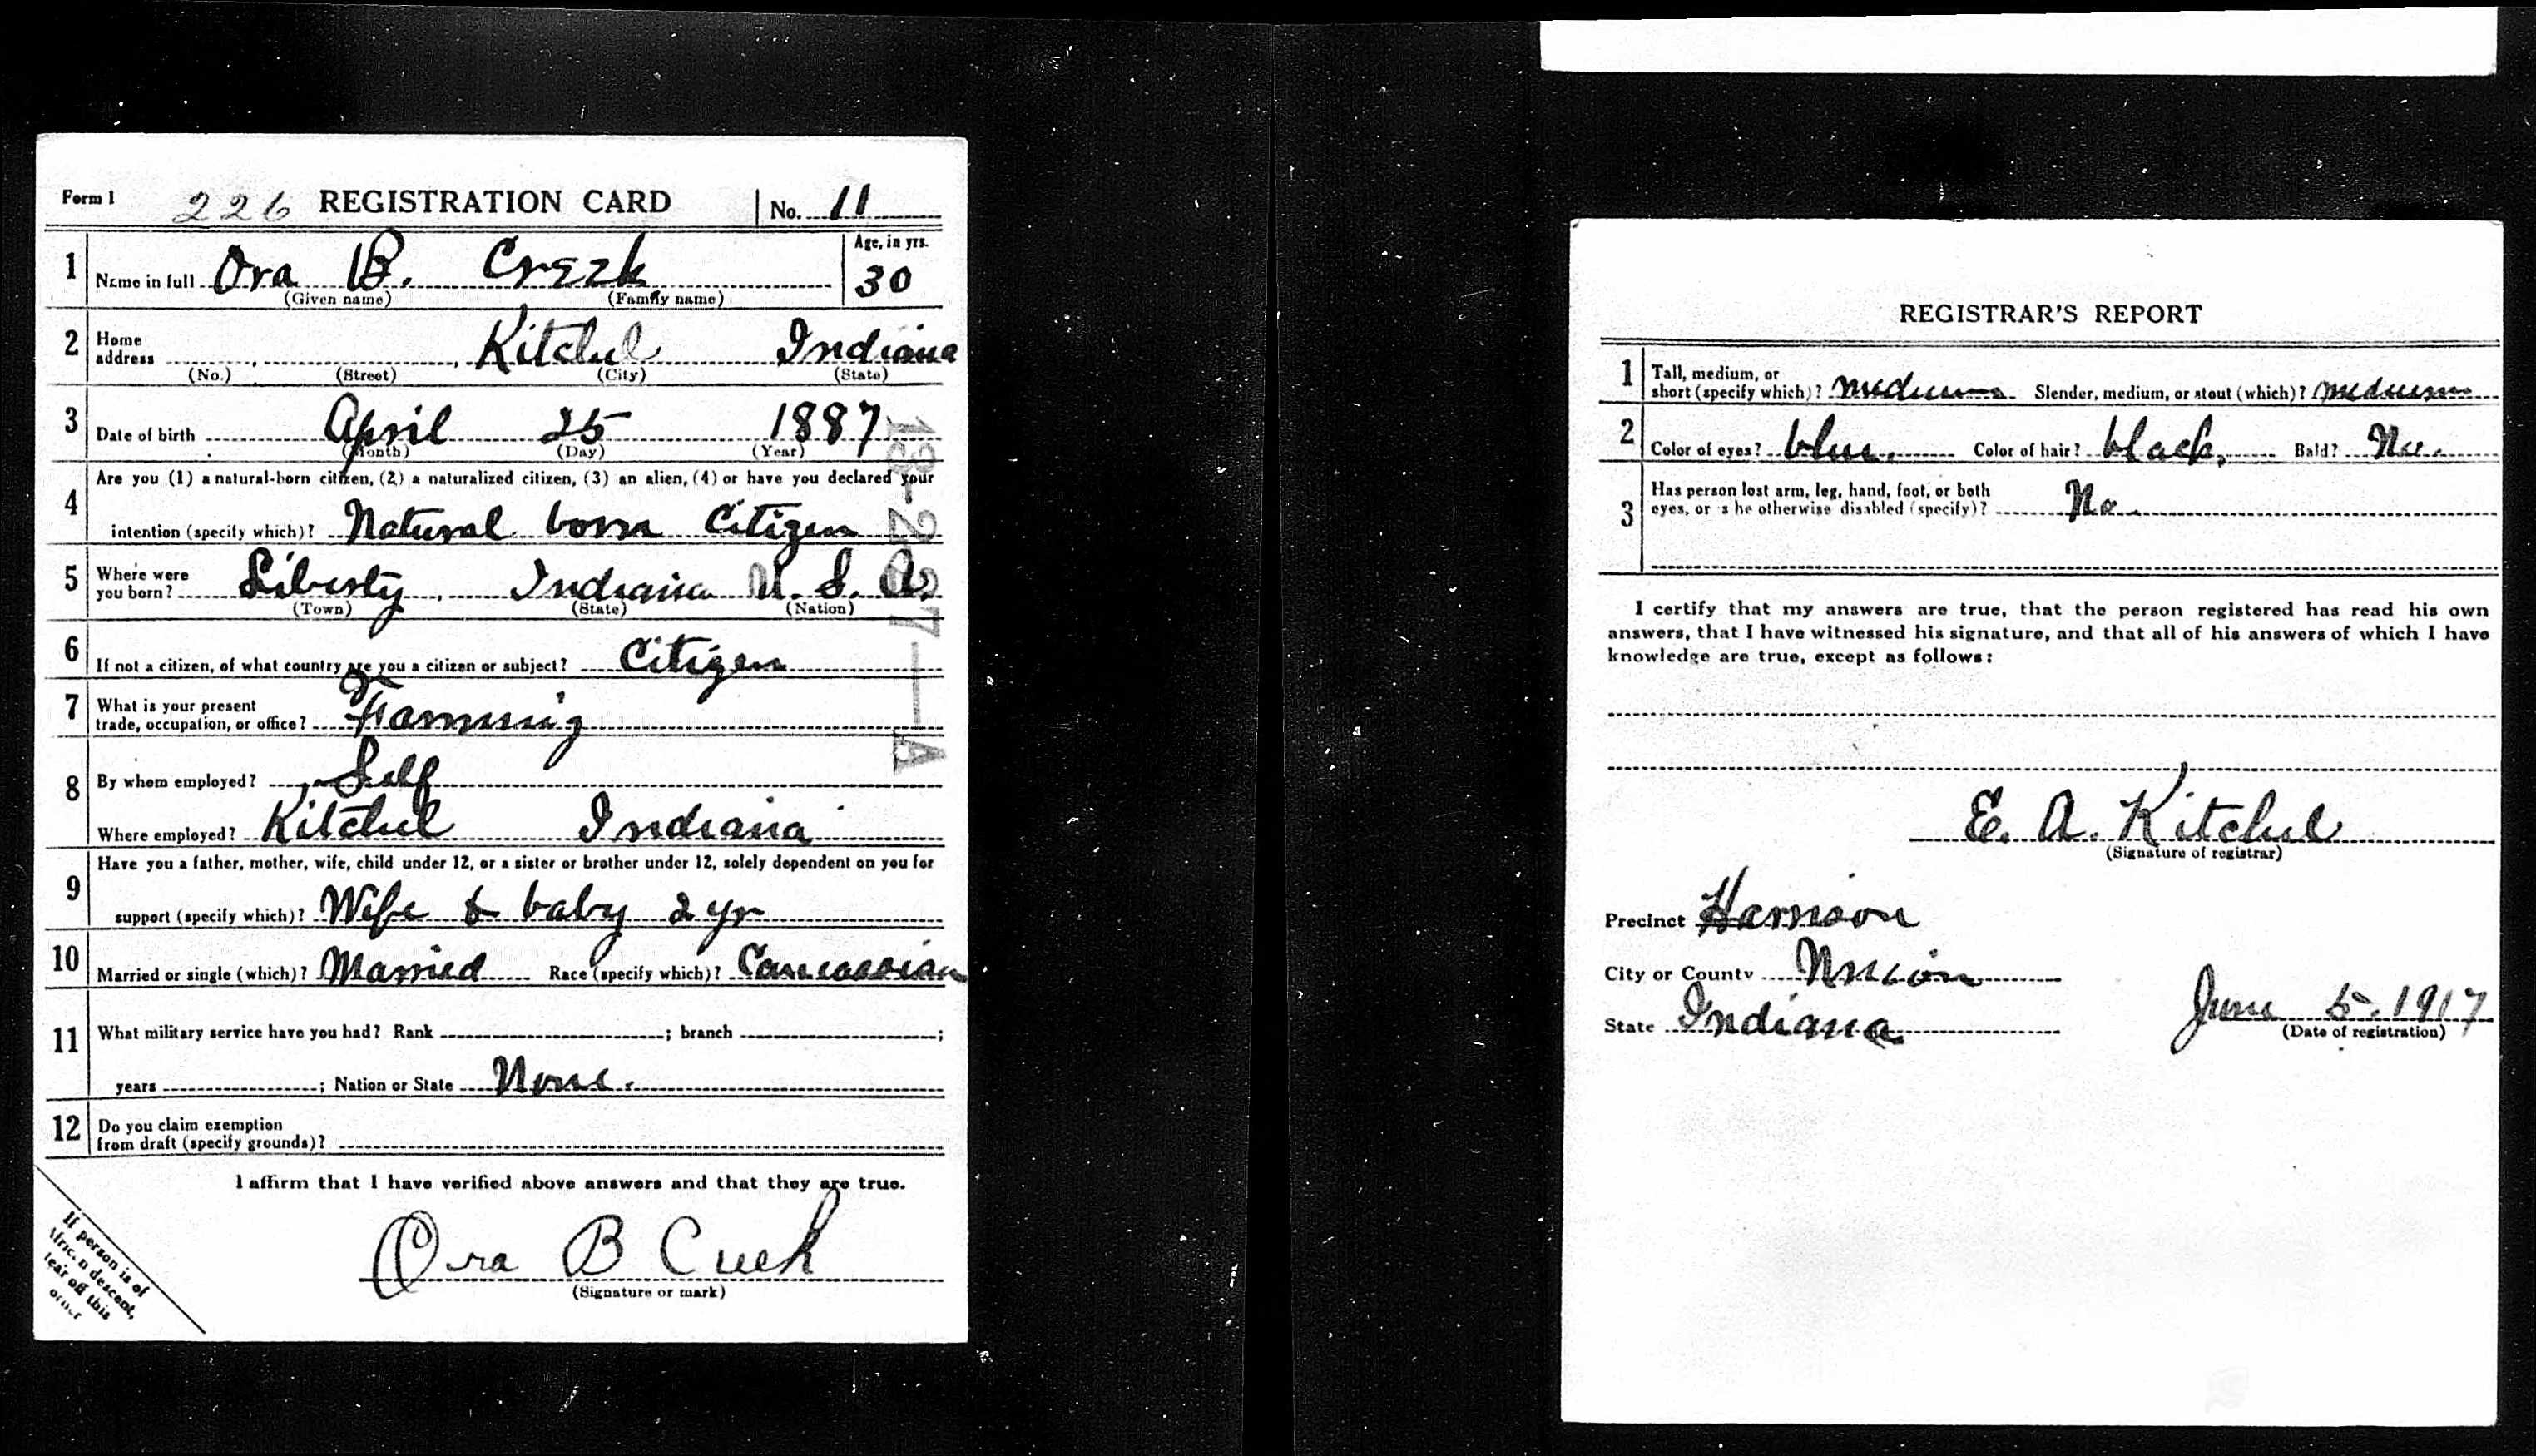 Form 1 226 REGISTRATION CARD No. 11
1 Name in full Ora B. Creek Age, in yrs. 30
(Given name) (Family name)
2 Home address Kitchel Indiana
(No.) (Street) (City) (State)
3 Date of birth April 25 1887
(Month) (Day) (Year)
Are you (1) a natural-born citizen, (2) a naturalized citizen, (3) an alien, (4) or have you declared your
4 intention (specify which)? Natural born Citizen
5 Where were you born? Liberty, Indiana U. S. A.
(Town) (State) (Nation)
6 If not a citizen, of what country are you a citizen or subject? Citizen
7 What is your present trade, occupation, or office? Farming
8 By whom employed? Self
Where employed? Kitchel Indiana
Have you a father, mother, wife, child under 12, or a sister or brother under 12, solely dependent on you for
9 support (specify which)? Wife & baby 2 yr
10 Married or single (which)? Married Race (specify which)? Caucassian
11 What military service have you had? Rank ; branch ;
years ; Nation or State None.
12 Do you claim exemption from draft (specify grounds)?
I affirm that I have verified above answers and that they are true.
Ora B Creek
(Signature or mark)
If person is of
African descent,
tear off this
corner
REGISTRAR'S REPORT
1 Tall, medium, or short (specify which)? medium Slender, medium, or stout (which)? medium
2 Color of eyes? blue. Color of hair? black. Bald? No.
3 Has person lost arm, leg, hand, foot, or both eyes, or is he otherwise disabled (specify)? No
I certify that my answers are true, that the person registered has read his own
answers, that I have witnessed his signature, and that all of his answers of which I have
knowledge are true, except as follows:
E. A. Kitchel
(Signature of registrar)
Precinct Harrison
City or County Union
State Indiana June 5. 1917
(Date of registration)